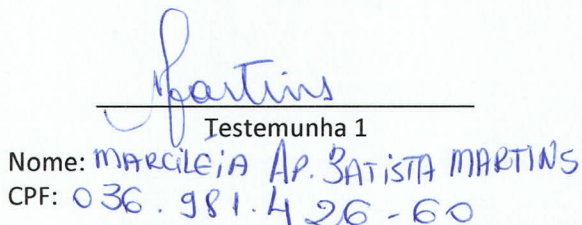 Martins
Testemunha 1
Nome: MARCILEIA AP. BATISTA MARTINS
CPF: 036.981.426-60